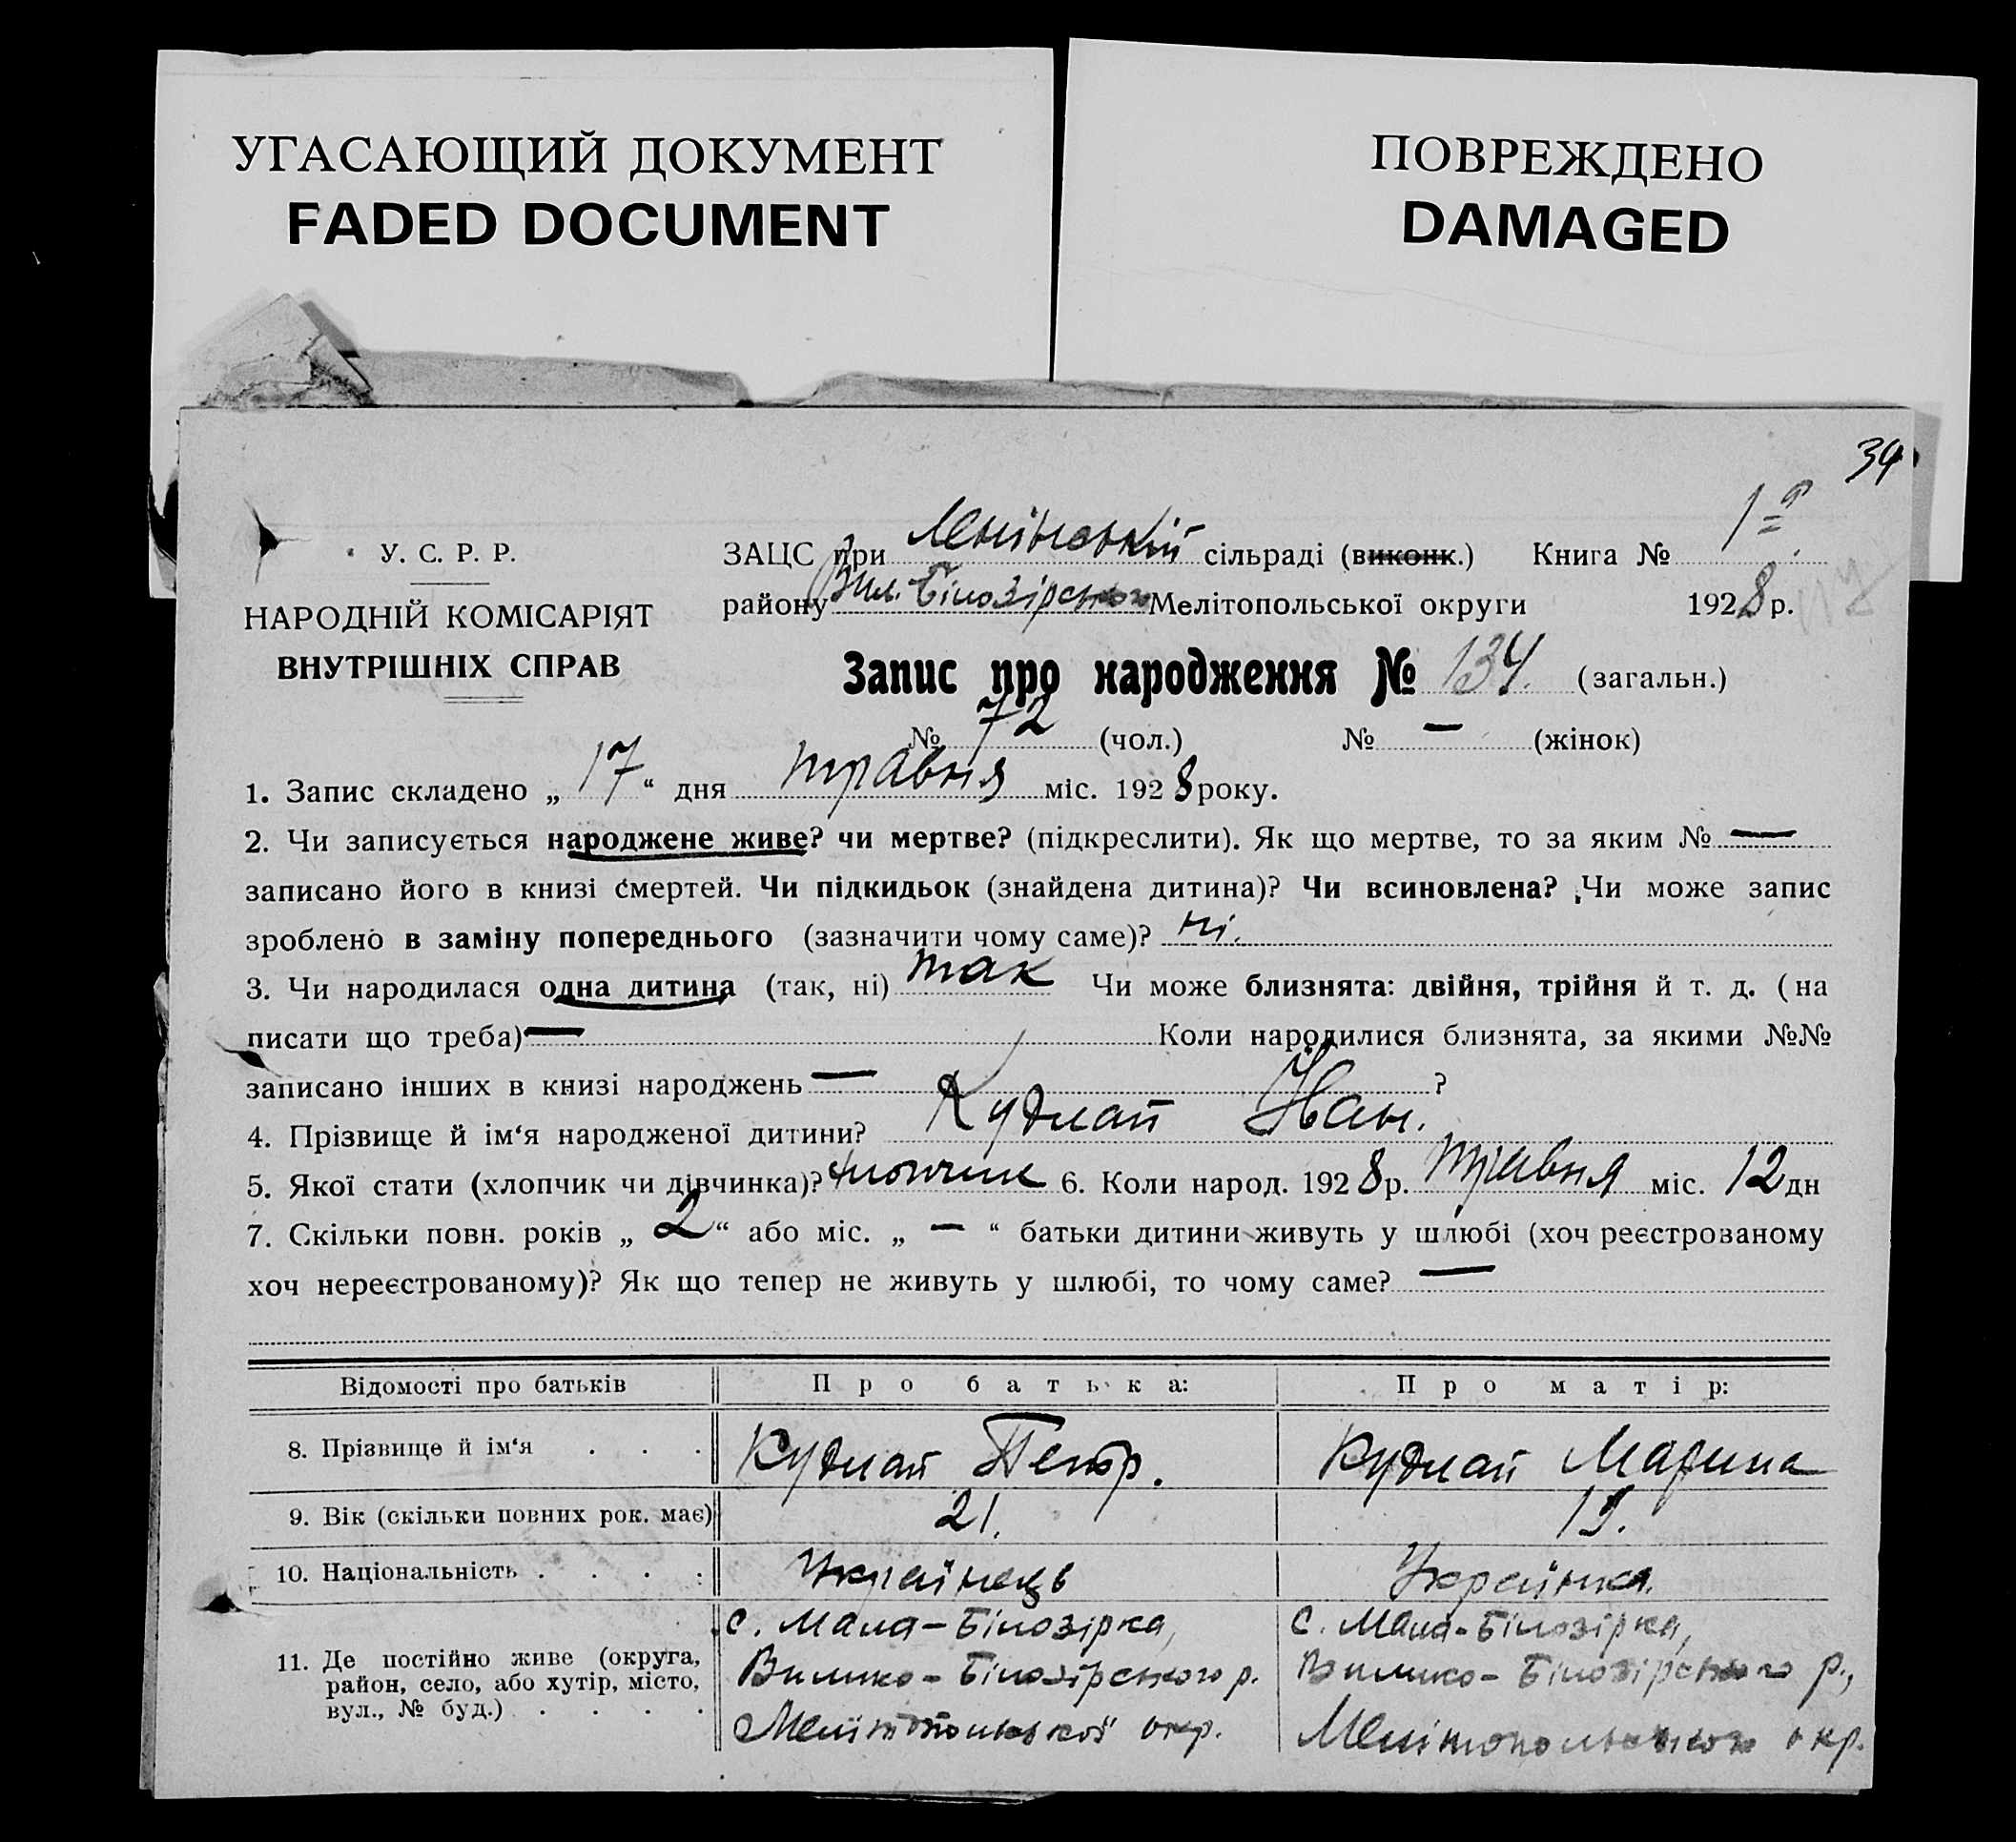 УГАСАЮЩИЙ ДОКУМЕНТ
FADED DOCUMENT
ПОВРЕЖДЕНО
DAMAGED
34
У. С. Р. Р.
НАРОДНІЙ КОМІСАРІЯТ
ВНУТРІШНІХ СПРАВ
ЗАЦС при Ленінській сільраді (виконк.) Книга № 1
району Вил. Білозірського Мелітопольської округи 1928 р.
Запис про народження № 134. (загальн.)
№ 72 (чол.) № — (жінок)
1. Запис складено „ 17 “ дня травня міс. 1928 року.
2. Чи записується народжене живе? чи мертве? (підкреслити). Як що мертве, то за яким № —
записано його в книзі смертей. Чи підкидьок (знайдена дитина)? Чи всиновлена? Чи може запис
зроблено в заміну попереднього (зазначити чому саме)? ні.
3. Чи народилася одна дитина (так, ні) так Чи може близнята: двійня, трійня й т. д. (на
писати що треба) — Коли народилися близнята, за якими №№
записано інших в книзі народжень — ?
4. Прізвище й ім‘я народженої дитини? Кудлай Іван.
5. Якої стати (хлопчик чи дівчинка)? хлопчик 6. Коли народ. 1928 р. травня міс. 12 дн
7. Скільки повн. років „ 2 “ або міс. „ — “ батьки дитини живуть у шлюбі (хоч реєстрованому
хоч нереєстрованому)? Як що тепер не живуть у шлюбі, то чому саме? —
Відомості про батьків Про батька: Про матір:
8. Прізвище й ім‘я . . . Кудлай Петр. Кудлай Марина
9. Вік (скільки повних рок. має) 21. 19.
10. Національність . . . . Українець Українка.
11. Де постійно живе (округа, район, село, або хутір, місто, вул., № буд.) . . . .
с. Мала-Білозірка,
Вилико-Білозірського р.
Мелітопольської окр.
с. Мала-Білозірка,
Вилико-Білозірського р.,
Мелітопольської окр.